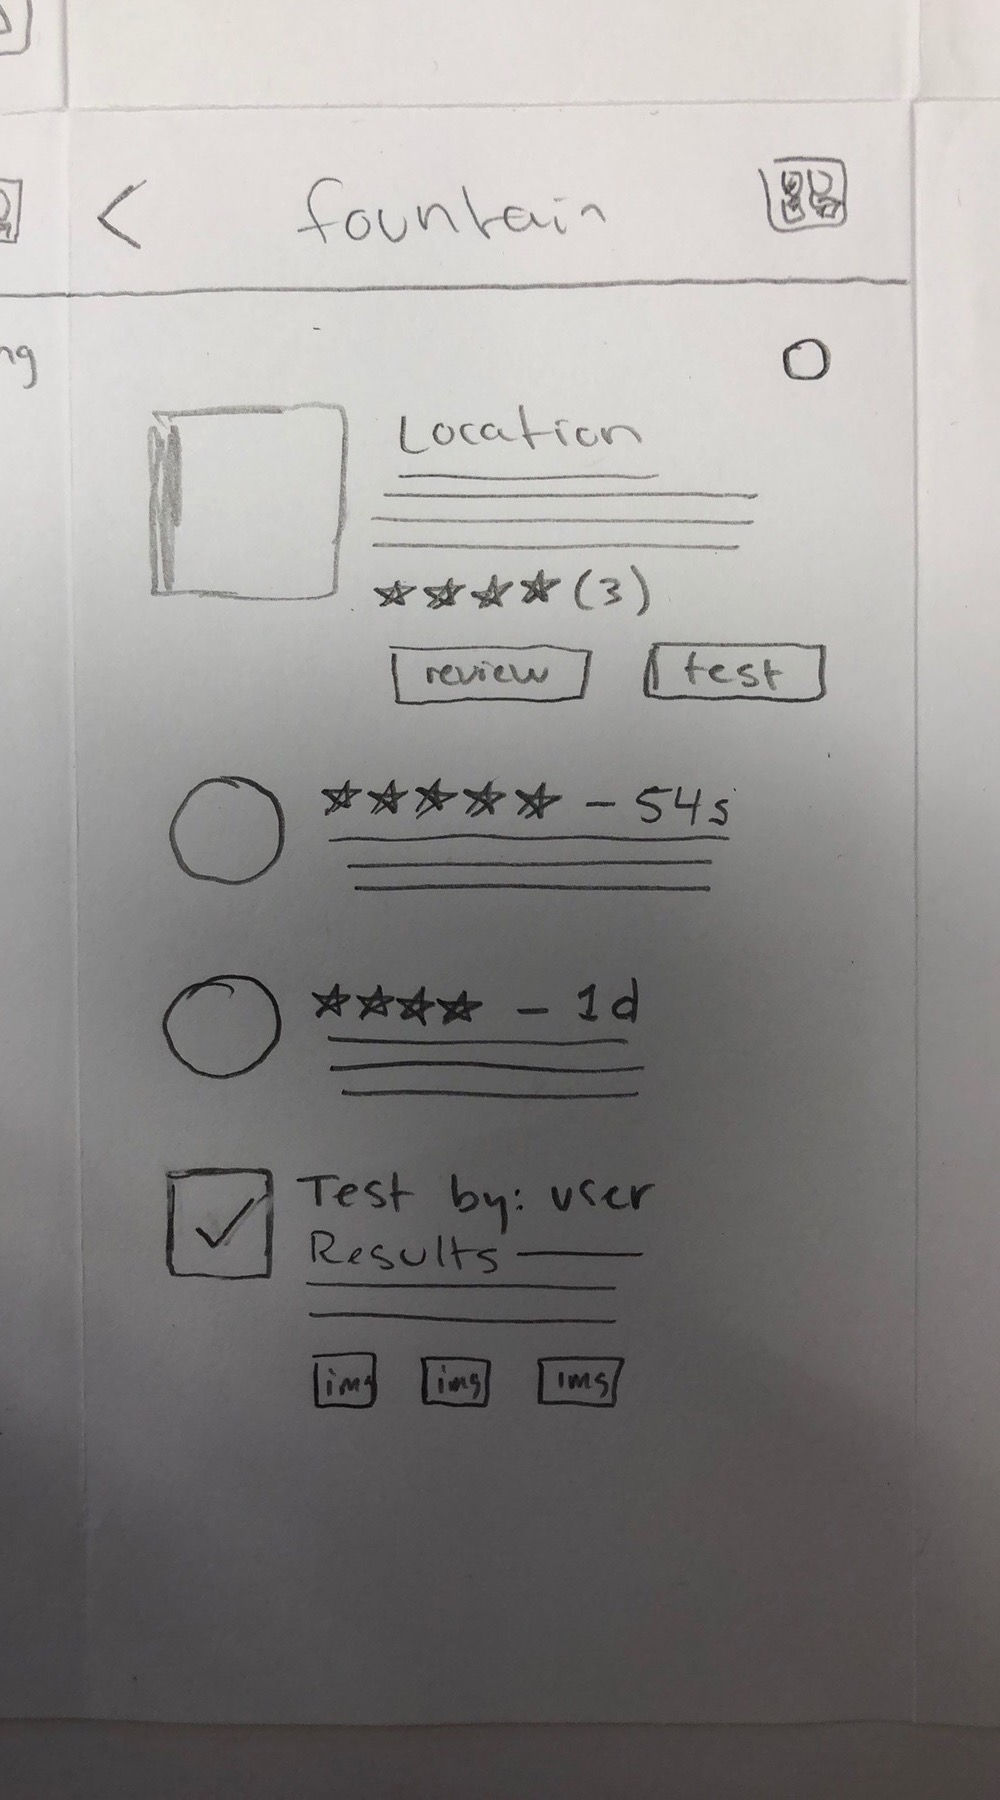 < fountain
ng
Location
★★★★ (3)
review test
★★★★★ - 54s
★★★★ - 1d
Test by: user
Results
img img img